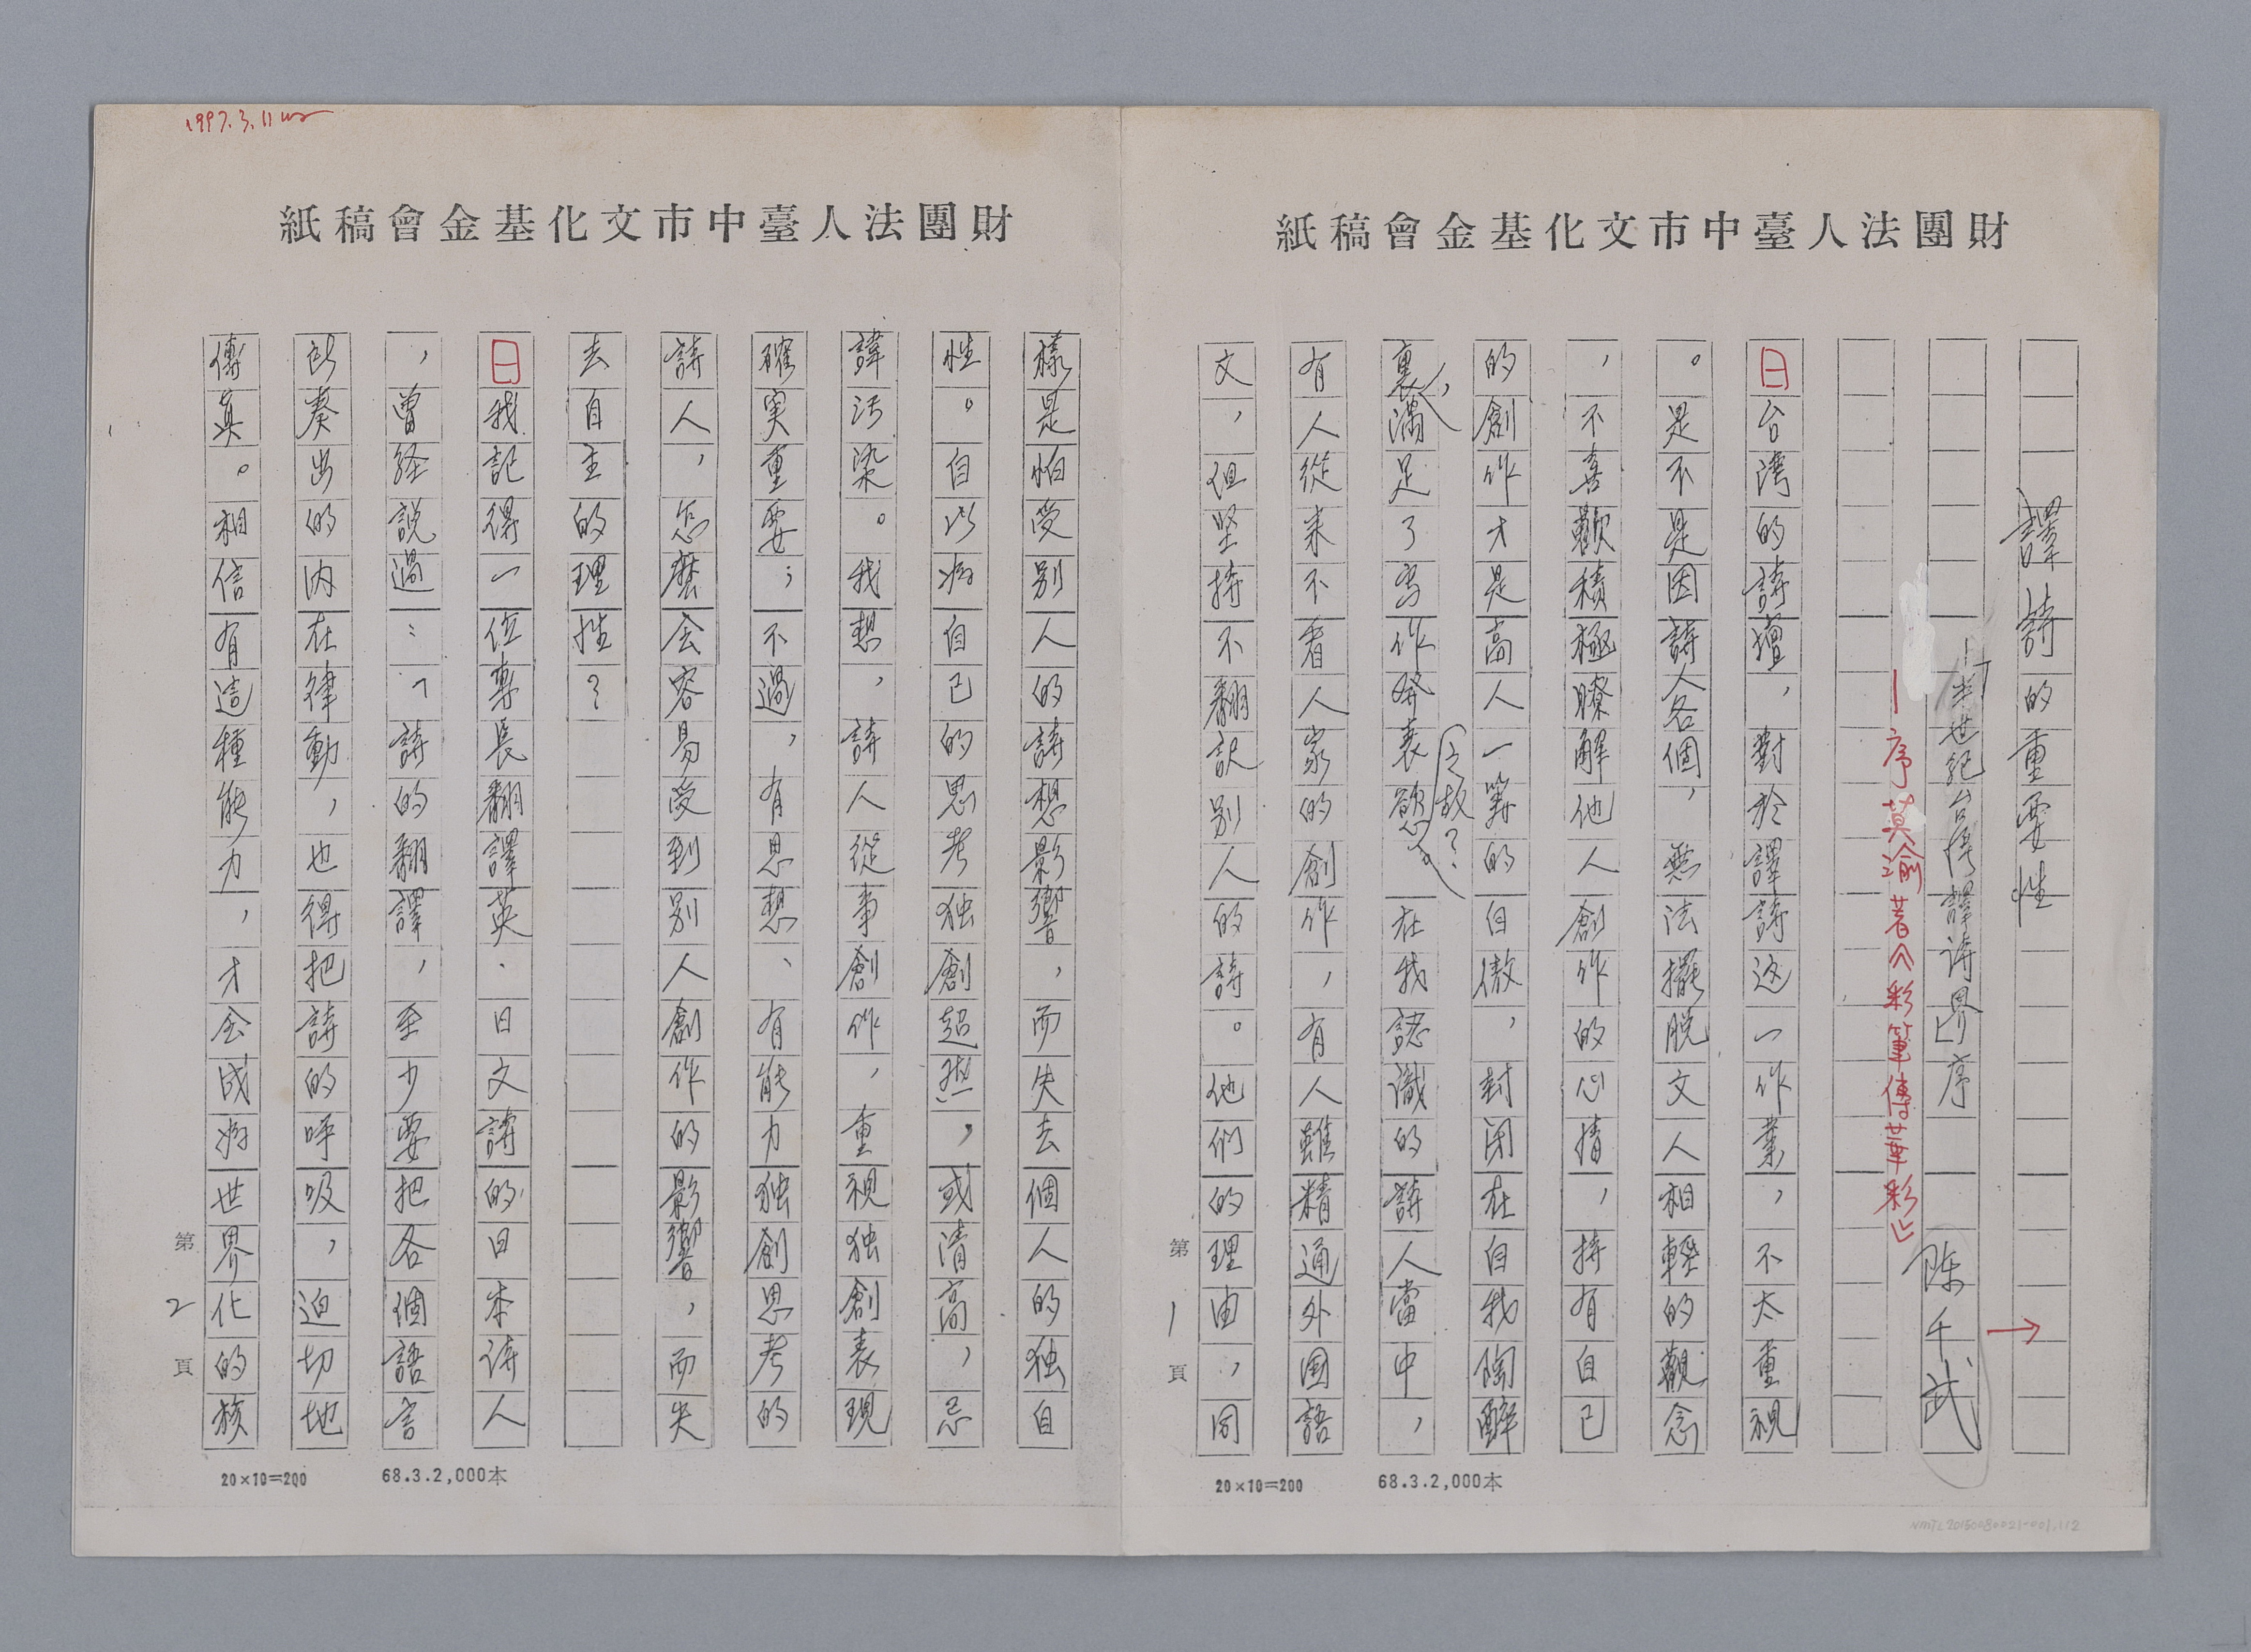 財團法人臺中市文化基金會稿紙
譯詩的重要性
半世紀台灣譯诗界」序
陈千武
—序莫渝著《彩筆傳華彩》
台湾的詩壇，對於譯詩这一作業，不太重視
。是不是因詩人各個，無法擺脱文人相輕的觀念
，不喜歡積極瞭解他人創作的心情，持有自己
的創作才是高人一等的自傲，封闭在自我陶醉
裏，满足了写作發表慾
之故？
。在我認識的詩人當中，
有人從来不看人家的創作，有人雖精通外国語
文，但坚持不翻訳别人的詩。他們的理由，同
第1頁
20×10=200
68.3.2,000本
NMTL20150080021-001.112
1997.3.11
財團法人臺中市文化基金會稿紙
樣是怕受别人的詩想影響，而失去個人的独自
性。自以為自己的思考独創超然，或清高，忌
諱污染。我想，詩人從事創作，重視独創表現
確実重要；不過，有思想、有能力独創思考的
詩人，怎麽会容易受到别人創作的影響，而失
去自主的理性？
我記得一位專長翻譯英·日文詩的日本诗人
，曾経説過：「詩的翻譯，至少要把各個語言
所奏出的内在律動，也得把詩的呼吸，迫切地
傳真。相信有這種能力，才会成為世界化的族
第2頁
20×10=200
68.3.2,000本